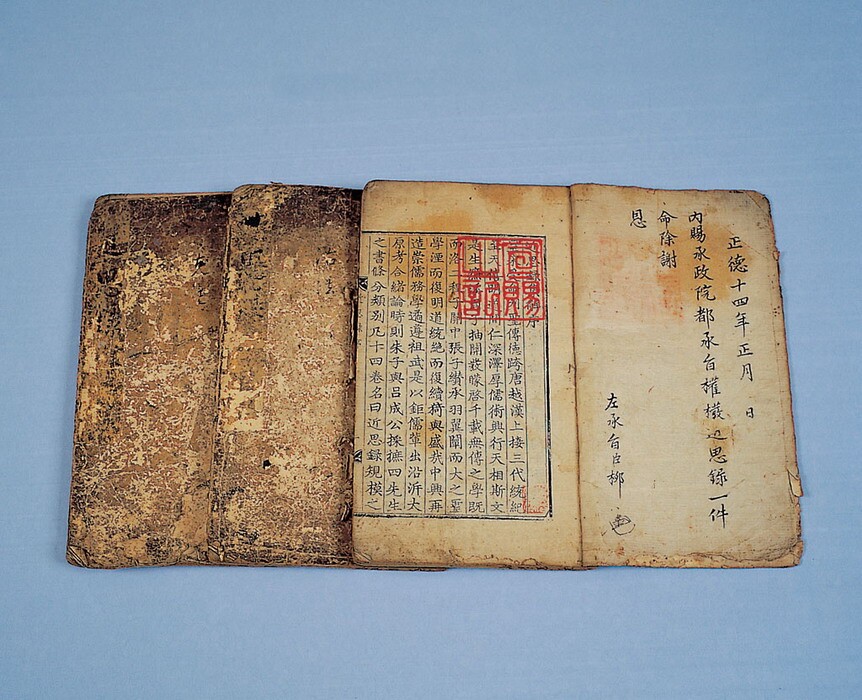 正德十四年正月 日
內賜承政院都承旨權橃近思錄一件
命除謝
恩
左承旨臣柳
序
聖傳德跨唐越漢上接三代統紀
至天明仁深澤厚儒術興行天相斯文
是生子抽關發矇啓千載無傳之學旣
而洛程子關中張子纘承羽翼闡而大之聖
學湮而復明道統絶而復續猗與盛哉中興再
造崇儒務學遹遵祖武是以鉅儒輩出沿泝大
原考合緖論時則朱子與呂成公採摭四先生
之書條分類別凡十四卷名曰近思錄規模之
宣賜之記